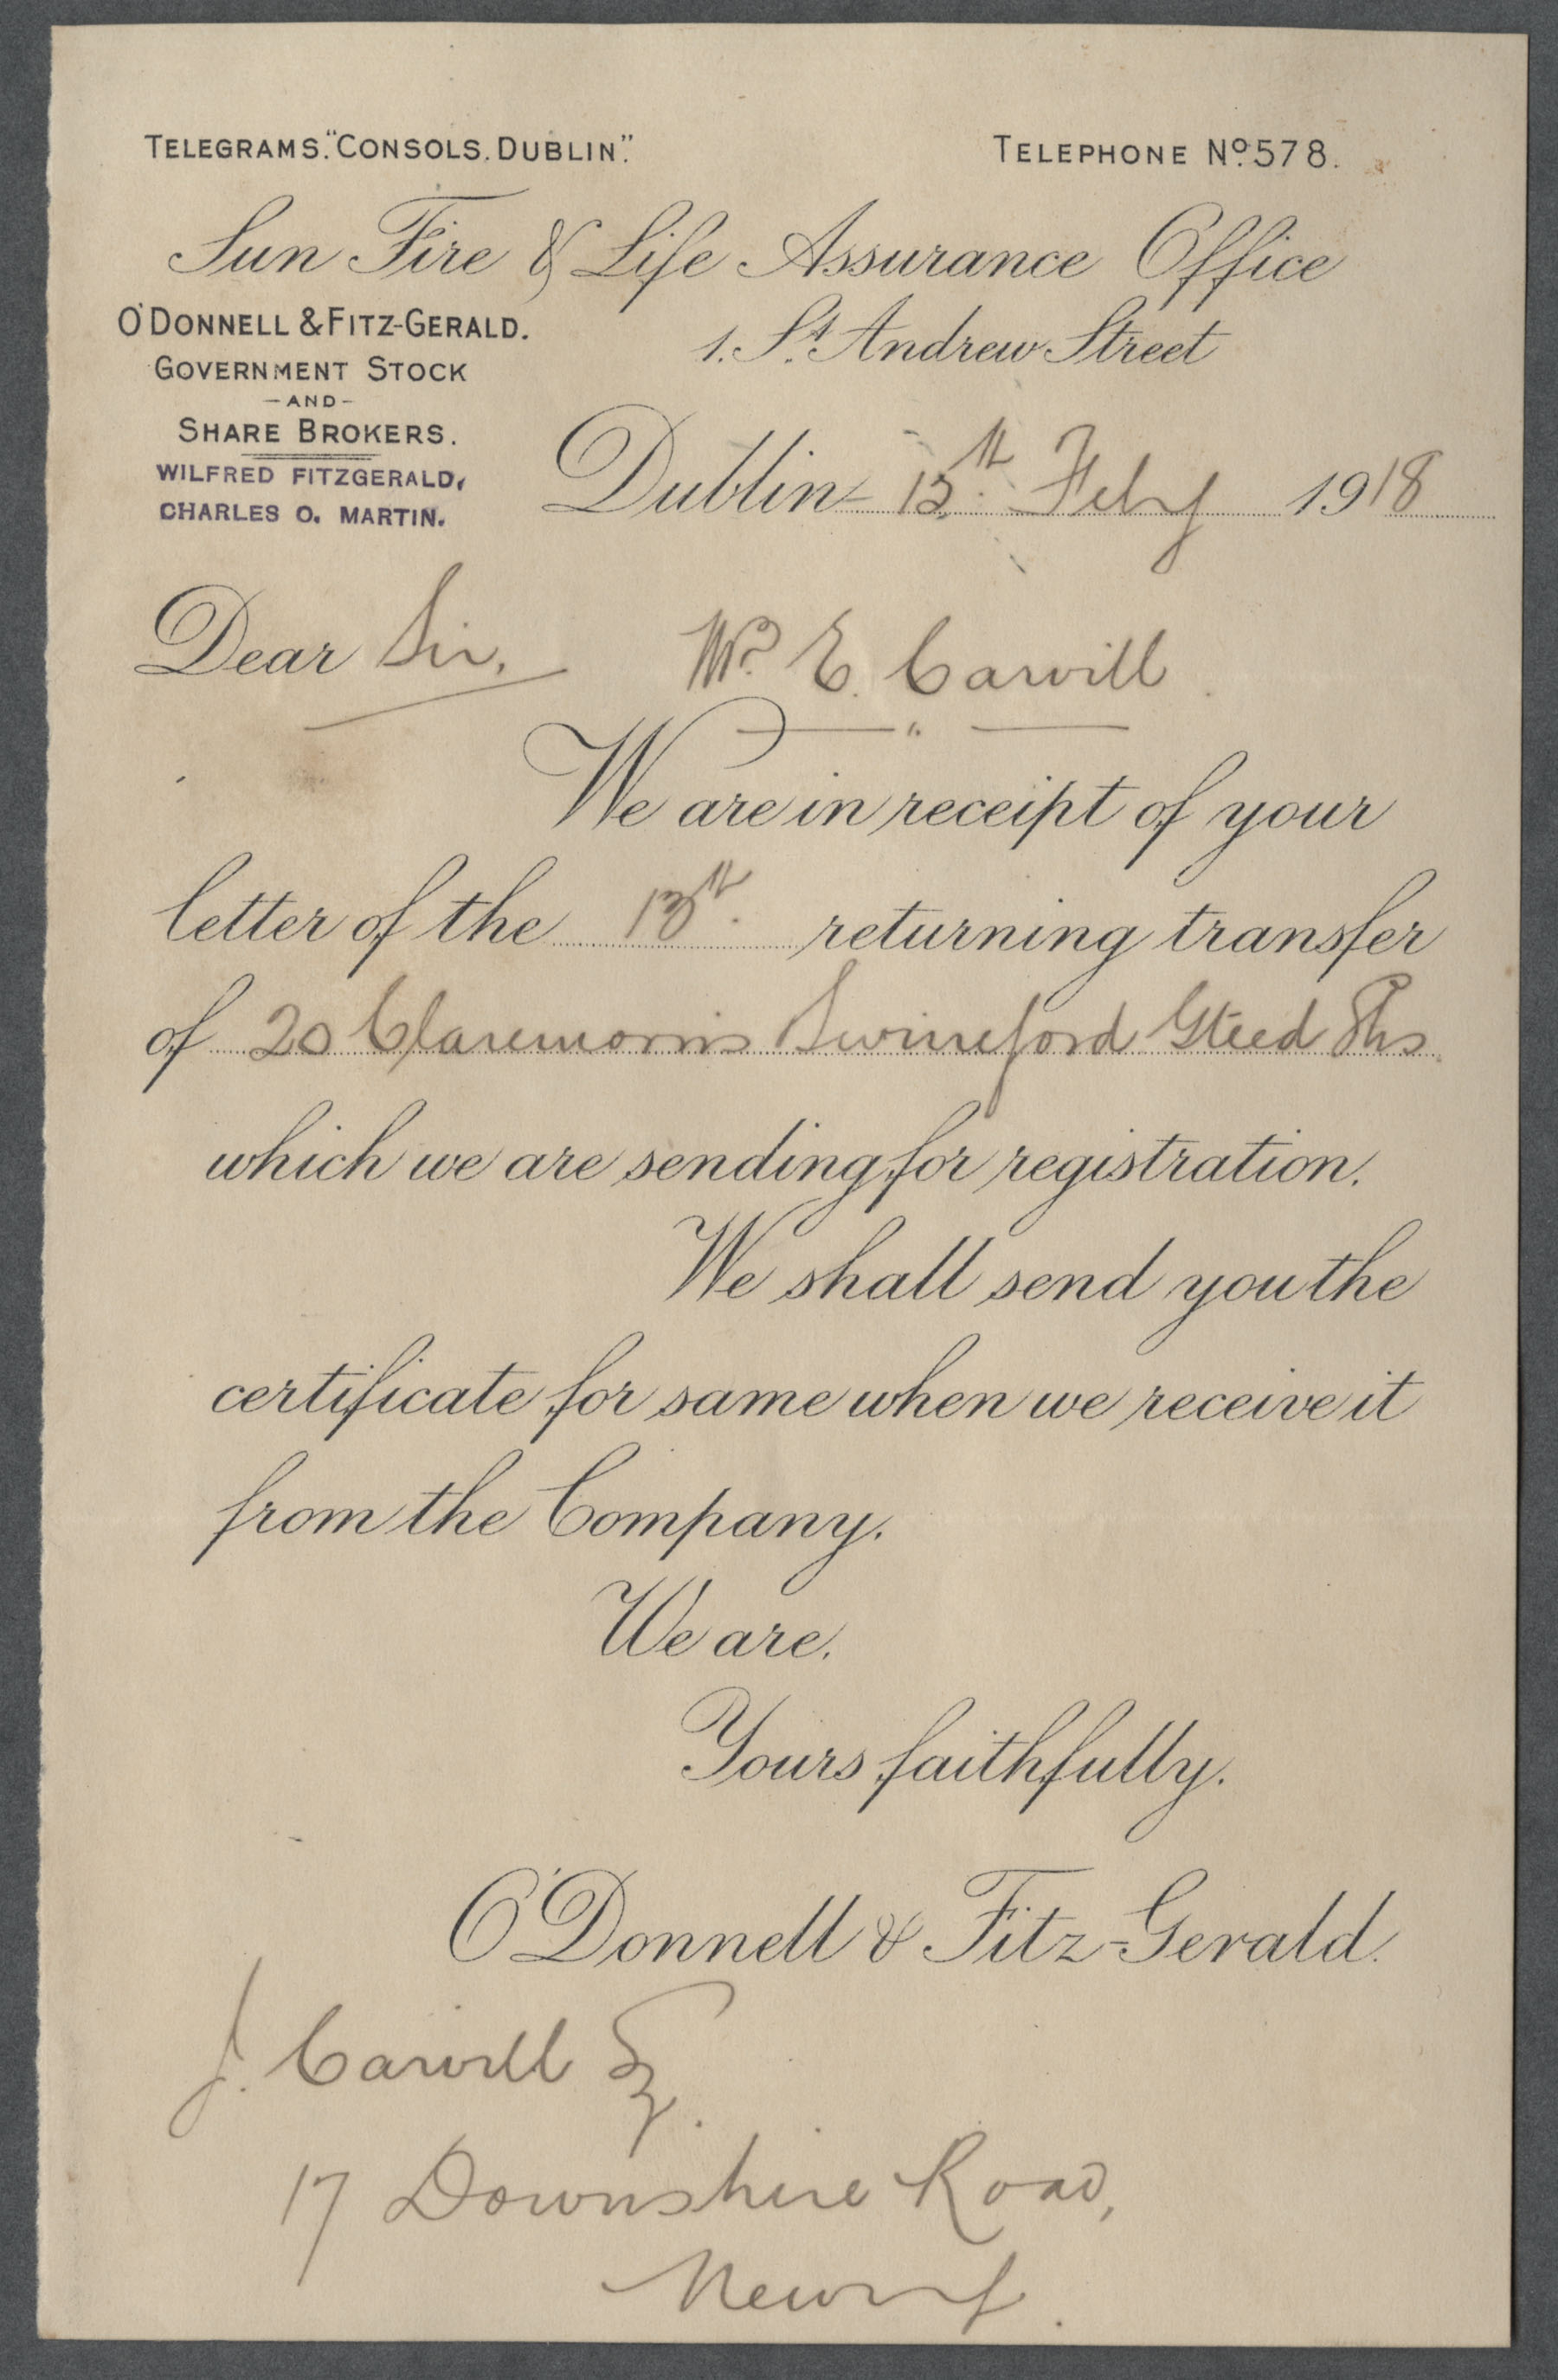 TELEGRAMS. "CONSOLS. DUBLIN".
TELEPHONE No. 578.
Sun Fire & Life Assurance Office
O'DONNELL & FITZ-GERALD.
1. St. Andrew Street
GOVERNMENT STOCK
- AND -
SHARE BROKERS.
WILFRED FITZGERALD,
CHARLES O. MARTIN.
Dublin 15th Feby 1918
Dear Sir,
E. Carvill
We are in receipt of your
letter of the 13th. returning transfer
of 20 Claremorris Swineford Gteed Shs
which we are sending for registration.
We shall send you the
certificate for same when we receive it
from the Company.
We are.
Yours faithfully.
O'Donnell & Fitz-Gerald.
J. Carvill Esq.
17 Downshire Road,
Newry.